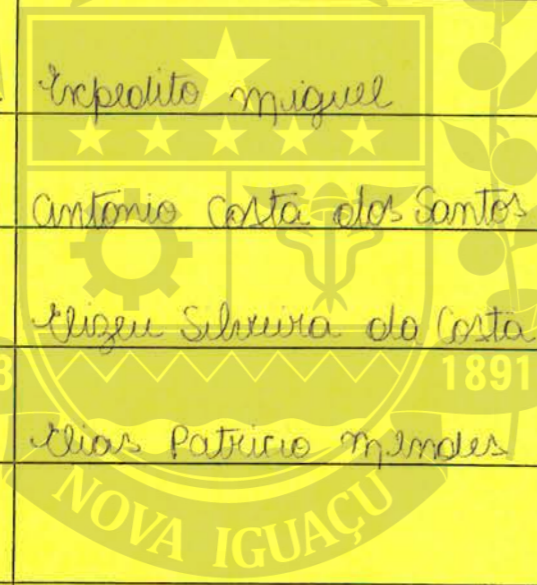 Expedito Miguel
Antonio Costa dos Santos
Elizeu Silveira da Costa
3 1891
Elias Patricio Mendes
NOVA IGUAÇU